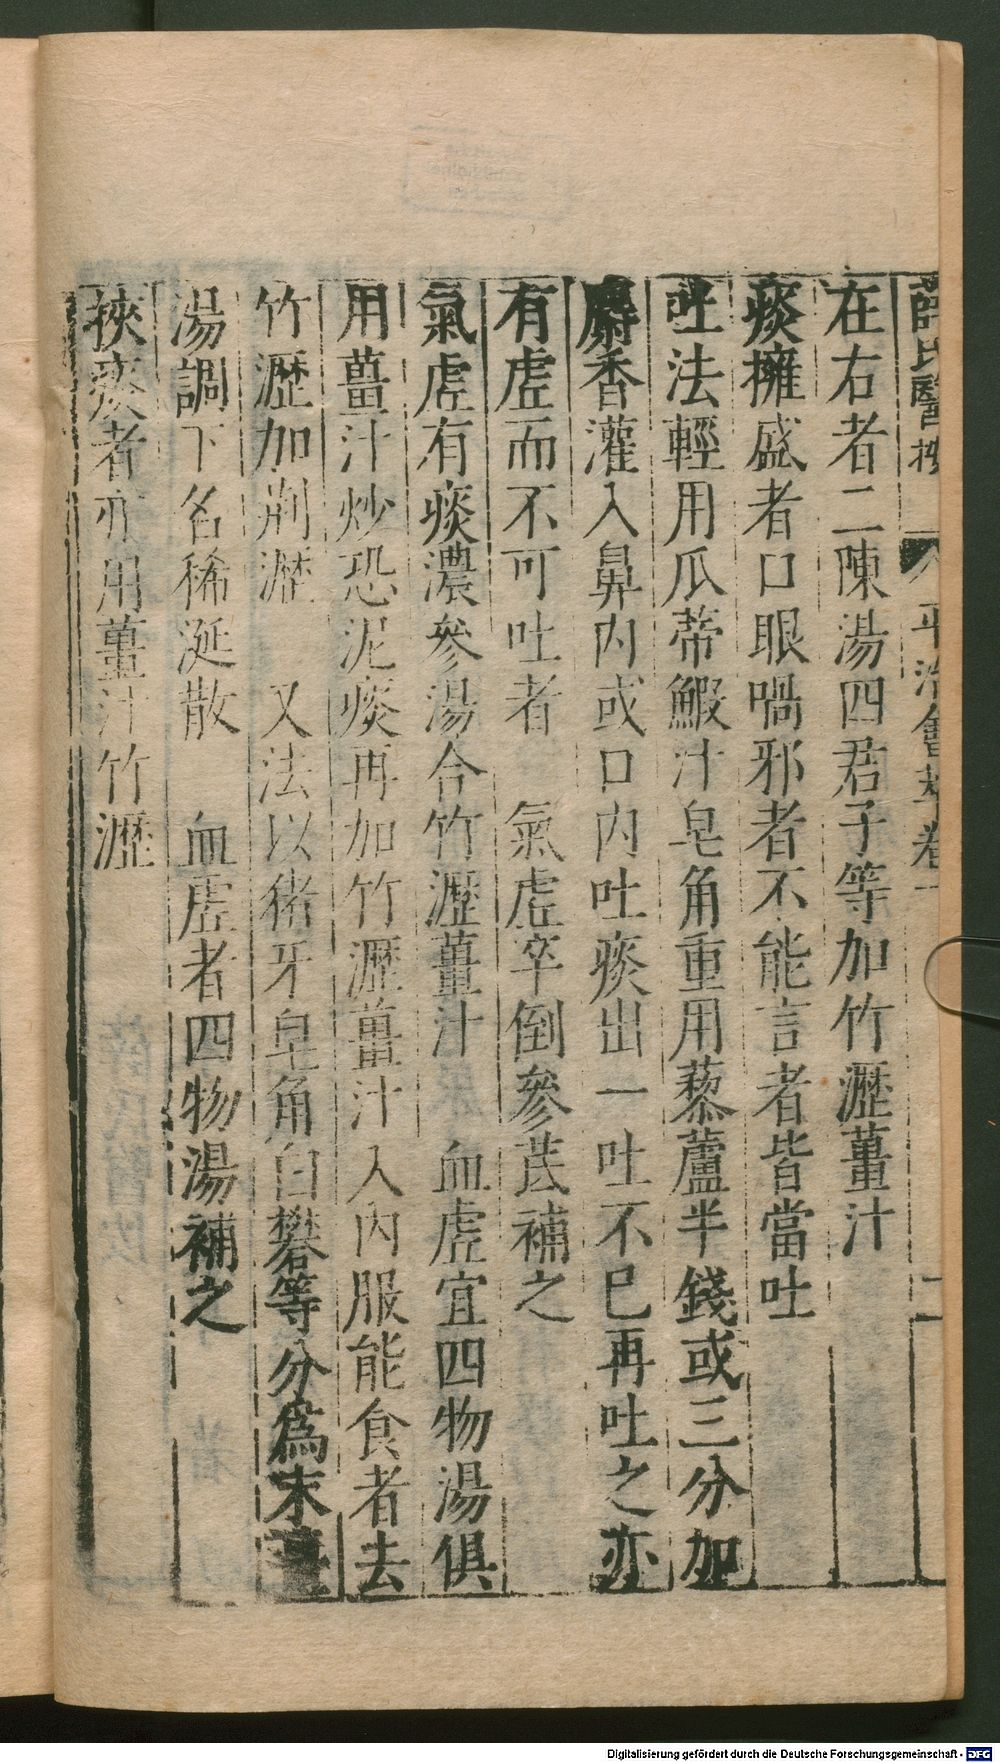 薛氏醫按 平治會萃卷一 二
在右者二陳湯四君子等加竹瀝薑汁
痰擁盛者口眼喎邪者不能言者皆當吐
吐法輕用瓜蒂鰕汁皂角重用藜蘆半錢或三分加
麝香灌入鼻內或口內吐痰出一吐不已再吐之亦
有虛而不可吐者 氣虛卒倒參芪補之
氣虛有痰濃參湯合竹瀝薑汁 血虛宜四物湯俱
用薑汁炒恐泥痰再加竹瀝薑汁入內服能食者去
竹瀝加荆瀝 又法以猪牙皂角白礬等分為末薑
湯調下名稀涎散 血虛者四物湯補之
挾痰者亦用薑汁竹瀝
Digitalisierung gefördert durch die Deutsche Forschungsgemeinschaft - DFG